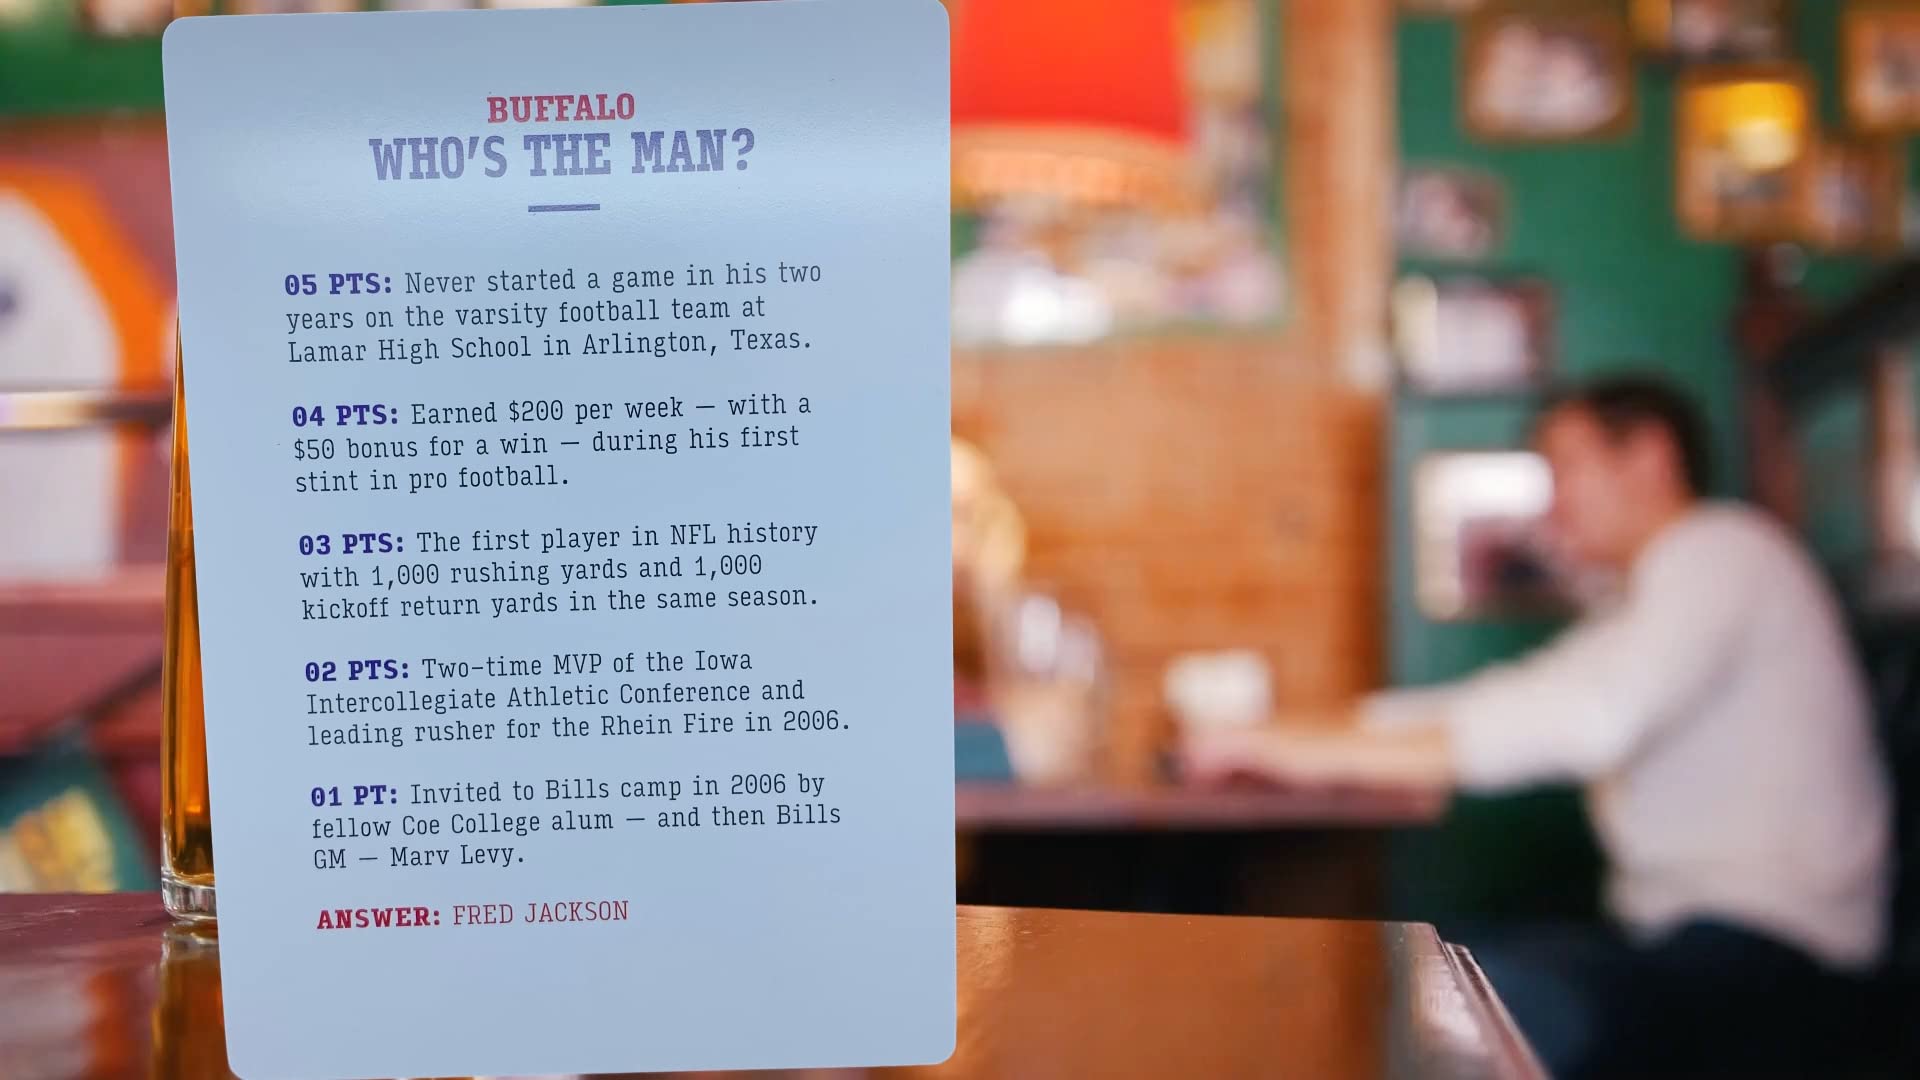 BUFFALO
WHO'S THE MAN?
05 PTS: Never started a game in his two
years on the varsity football team at
Lamar High School in Arlington, Texas.
04 PTS: Earned $200 per week — with a
$50 bonus for a win — during his first
stint in pro football.
03 PTS: The first player in NFL history
with 1,000 rushing yards and 1,000
kickoff return yards in the same season.
02 PTS: Two-time MVP of the Iowa
Intercollegiate Athletic Conference and
leading rusher for the Rhein Fire in 2006.
01 PT: Invited to Bills camp in 2006 by
fellow Coe College alum — and then Bills
GM — Marv Levy.
ANSWER: FRED JACKSON